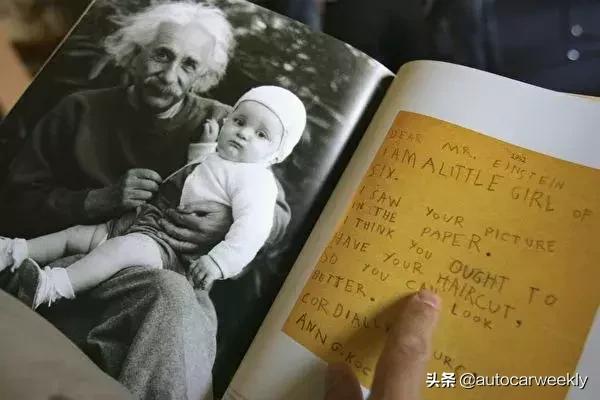 DEAR MR. EINSTEIN
I AM A LITTLE GIRL OF
SIX.
I SAW YOUR PICTURE
IN THE PAPER.
I THINK YOU OUGHT TO
HAVE YOUR HAIRCUT,
SO YOU CAN LOOK
BETTER.
CORDIALLY
ANN G.
头条 @autocarweekly